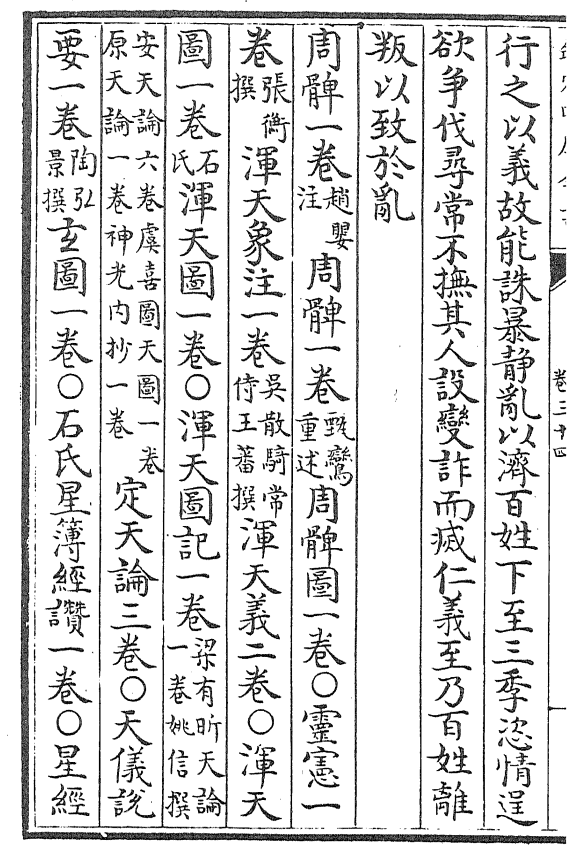 行之以義故能誅暴静亂以濟百姓下至三季恣情逞
欲争伐尋常不撫其人設變詐而滅仁義至乃百姓離
叛以致於亂
周髀一卷趙嬰注周髀一卷甄鸞重述周髀圖一卷○靈憲一
卷張衡撰渾天象注一卷吳散騎常侍王蕃撰渾天義二卷○渾天
圖一卷石氏渾天圖一卷○渾天圖記一卷梁有昕天論一卷姚信撰
安天論六卷虞喜圖天圖一卷原天論一卷神光内抄一卷定天論三卷○天儀說
要一卷陶弘景撰玄圖一卷○石氏星簿經讚一卷○星經
卷三十四